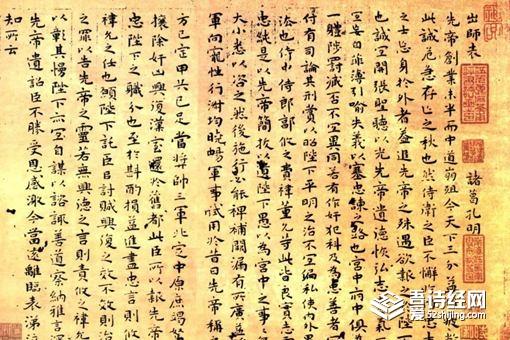 出師表 諸葛孔明
先帝創業未半而中道崩殂今天下三分益州疲敝
此誠危急存亡之秋也然侍衛之臣不懈於內忠志
之士忘身於外者蓋追先帝之殊遇欲報之陛下
也誠宜開張聖聽以光先帝遺德恢弘志士之氣
宜妄自菲薄引喻失義以塞忠諫之路也宮中府中俱為
一體陟罰臧否不宜異同若有作奸犯科及為忠善者
付有司論其刑賞以昭陛下平明之治不宜偏私使內外異
法也侍中侍郎郭攸之費禕董允等此皆良實志慮
忠純是以先帝簡拔以遺陛下愚以為宮中之事
大小悉以咨之然後施行必能裨補闕漏有所廣益
軍向寵性行淑均曉暢軍事試用於昔日先帝稱之
方已定甲兵已足當獎帥三軍北定中原庶竭駑
攘除奸凶興復漢室還於舊都此臣所以報先帝
忠陛下之職分也至於斟酌損益進盡忠言則攸
禕允之任也願陛下託臣以討賊興復之效不效則治
之罪以告先帝之靈若無興德之言則責攸之禕允
以彰其慢陛下亦宜自謀以諮諏善道察納雅言深
先帝遺詔臣不勝受恩感激今當遠離臨表涕泣
知所云
吾诗经网
52shijing.com